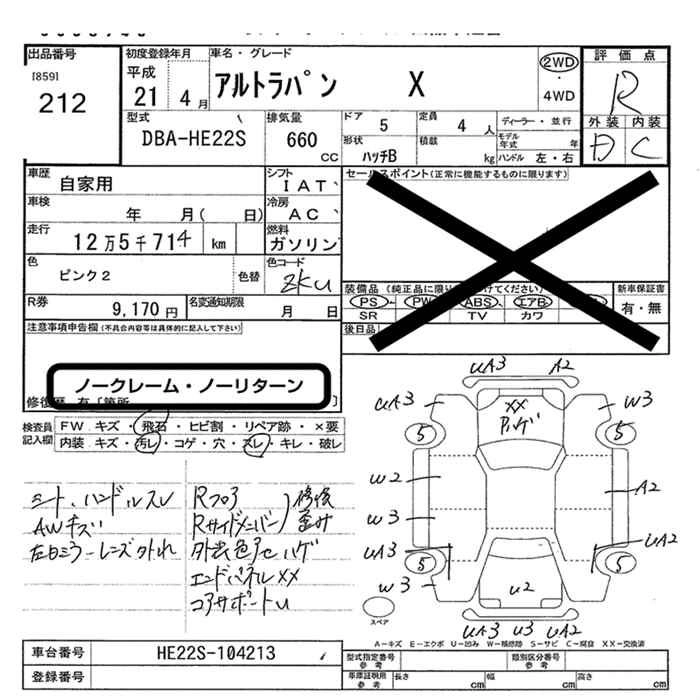 出品番号
[859]
212
初度登録年月
平成
21 4 月
車名・グレード
アルトラパン X
2WD
・
4WD
評価点
R
外装 内装
D C
型式
DBA-HE22S
排気量
660
CC
ドア
5
定員
4 人
形状
ハッチB
積載
kg
ディーラー・並行
モデル年式 年
ハンドル 左・右
車歴
自家用
シフト
IAT
車検
年 月( 日)
冷房
AC
走行
12万5千714 km
燃料
ガソリン
色
ピンク2
色替
色コード
ZKU
R券
9,170 円
名変通知期限
月 日
セールスポイント(正常に機能するものに限ります)
装備品 (純正品に限り
けてください)
PS PW ABS エアB
SR TV カワ
新車保証書
有・無
後日品
注意事項申告欄 (不具合内容等は具体的に記入して下さい)
ノークレーム・ノーリターン
修復歴 有〔箇所 〕
検査員記入欄
FW.キズ・飛石・ヒビ割・リペア跡・×要
内装.キズ・汚レ・コゲ・穴・スレ・キレ・破レ
シート、ハンドルスレ
AWキズ
左ドミラーレンズ外れ
Rフロア
Rサイドメンバー
修復
歪み
外装色アセ ハゲ
エンドパネルXX
コアサポートU
UA3 A2
UA3 W3
XX
ハゲ
5 5
W2
W3
A2
UA3 UA2
5 5
W3
U2
UA3 U3 UA2
スペア
A−キズ E−エクボ U−凹み W−補修跡 S−サビ C−腐食 XX−交換済
車台番号
HE22S-104213
登録番号
型式指定番号
参考
類別区分番号
参考
車庫証明用
参考
長さ cm 幅 cm 高さ cm